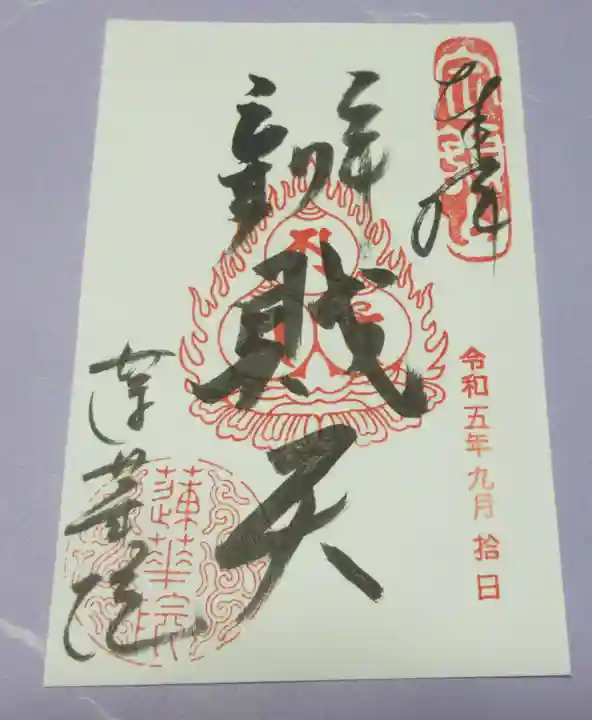 奉拝
令和五年九月拾日
辨財天
蓮華院
蓮華院